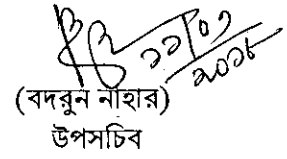 ১১/০১
২০১৮
(বদরুন নাহার)
উপসচিব